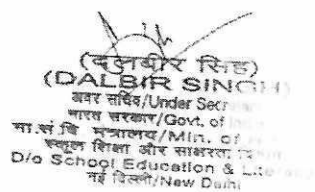 (दलबीर सिंह)
(DALBIR SINGH)
अवर सचिव/Under Secr
भारत सरकार/Govt. of
मा.सं.वि मंत्रालय/Min. of
स्कूल शिक्षा और साक्षरता
D/o School Education &
नई दिल्ली/New Delhi